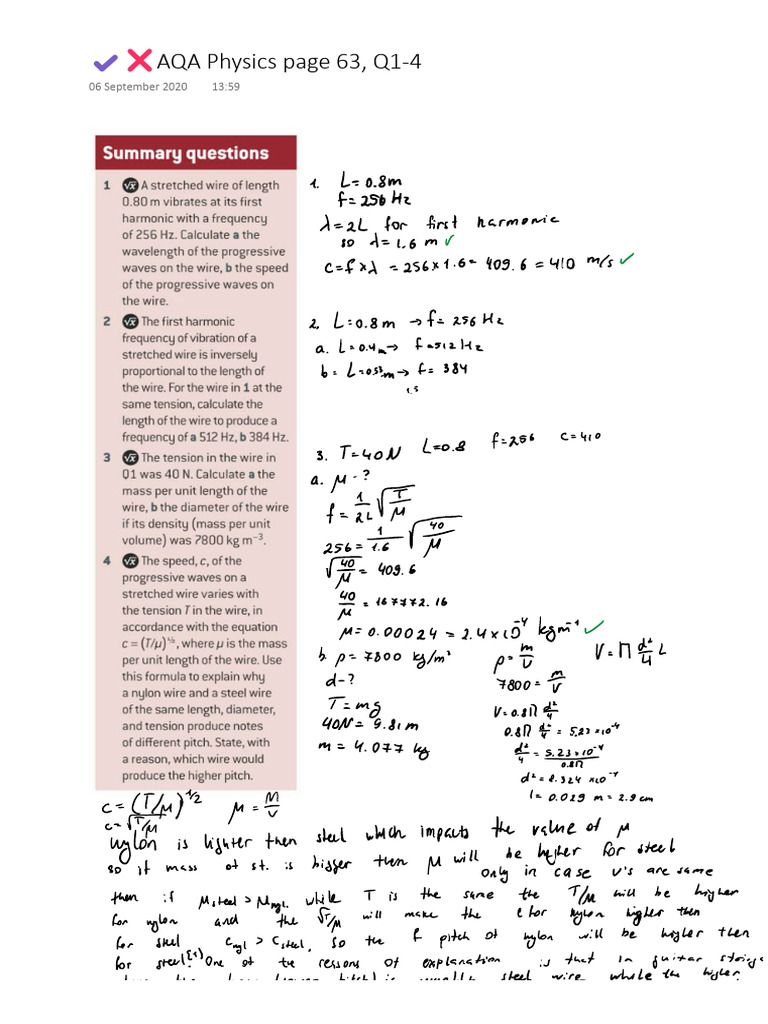 AQA Physics page 63, Q1-4
06 September 2020 13:59
Summary questions
1 √x A stretched wire of length
0.80 m vibrates at its first
harmonic with a frequency
of 256 Hz. Calculate a the
wavelength of the progressive
waves on the wire, b the speed
of the progressive waves on
the wire.
2 √x The first harmonic
frequency of vibration of a
stretched wire is inversely
proportional to the length of
the wire. For the wire in 1 at the
same tension, calculate the
length of the wire to produce a
frequency of a 512 Hz, b 384 Hz.
3 √x The tension in the wire in
Q1 was 40 N. Calculate a the
mass per unit length of the
wire, b the diameter of the wire
if its density (mass per unit
volume) was 7800 kg m⁻³.
4 √x The speed, c, of the
progressive waves on a
stretched wire varies with
the tension T in the wire, in
accordance with the equation
c = (T/μ)^½, where μ is the mass
per unit length of the wire. Use
this formula to explain why
a nylon wire and a steel wire
of the same length, diameter,
and tension produce notes
of different pitch. State, with
a reason, which wire would
produce the higher pitch.
1. L=0.8m
f=256 Hz
λ=2L for first harmonic
so λ=1.6 m ✓
c=f×λ = 256×1.6= 409.6 = 410 m/s ✓
2. L=0.8m → f= 256 Hz
a. L=0.4m → f=512 Hz
b = L=0.53m → f= 384
1.5
3. T=40N L=0.8 f=256 c=410
a. μ-?
f = 1/2L √T/μ
256 = 1/1.6 √40/μ
√40/μ = 409.6
40/μ = 167772.16
μ=0.00024 = 2.4×10⁻⁴ kgm⁻¹ ✓
b. ρ=7800 kg/m³
d-?
T=mg
40N=9.81m
m=4.077 kg
ρ=m/V V=Π d²/4 L
7800 = m/V
V=0.8Π d²/4
0.8Π d²/4 = 5.23×10⁻⁴
d²/4 = 5.23×10⁻⁴/0.8Π
d²=8.324 ×10⁻⁴
l=0.029 m = 2.9cm
c=(T/μ)^1/2 μ=M/V
c=√T/μ
nylon is lighter then steel which impacts the value of μ
so if mass of st. is bigger then μ will be higher for steel
only in case V's are same
then if μsteel > μnyl. while T is the same the T/μ will be higher
for nylon and the √T/μ will make the c for nylon higher then
for steel cnyl > csteel, so the f pitch of nylon will be higher then
for steel. One of the reasons of explanation is that in guitar strings
steel wire while the higher